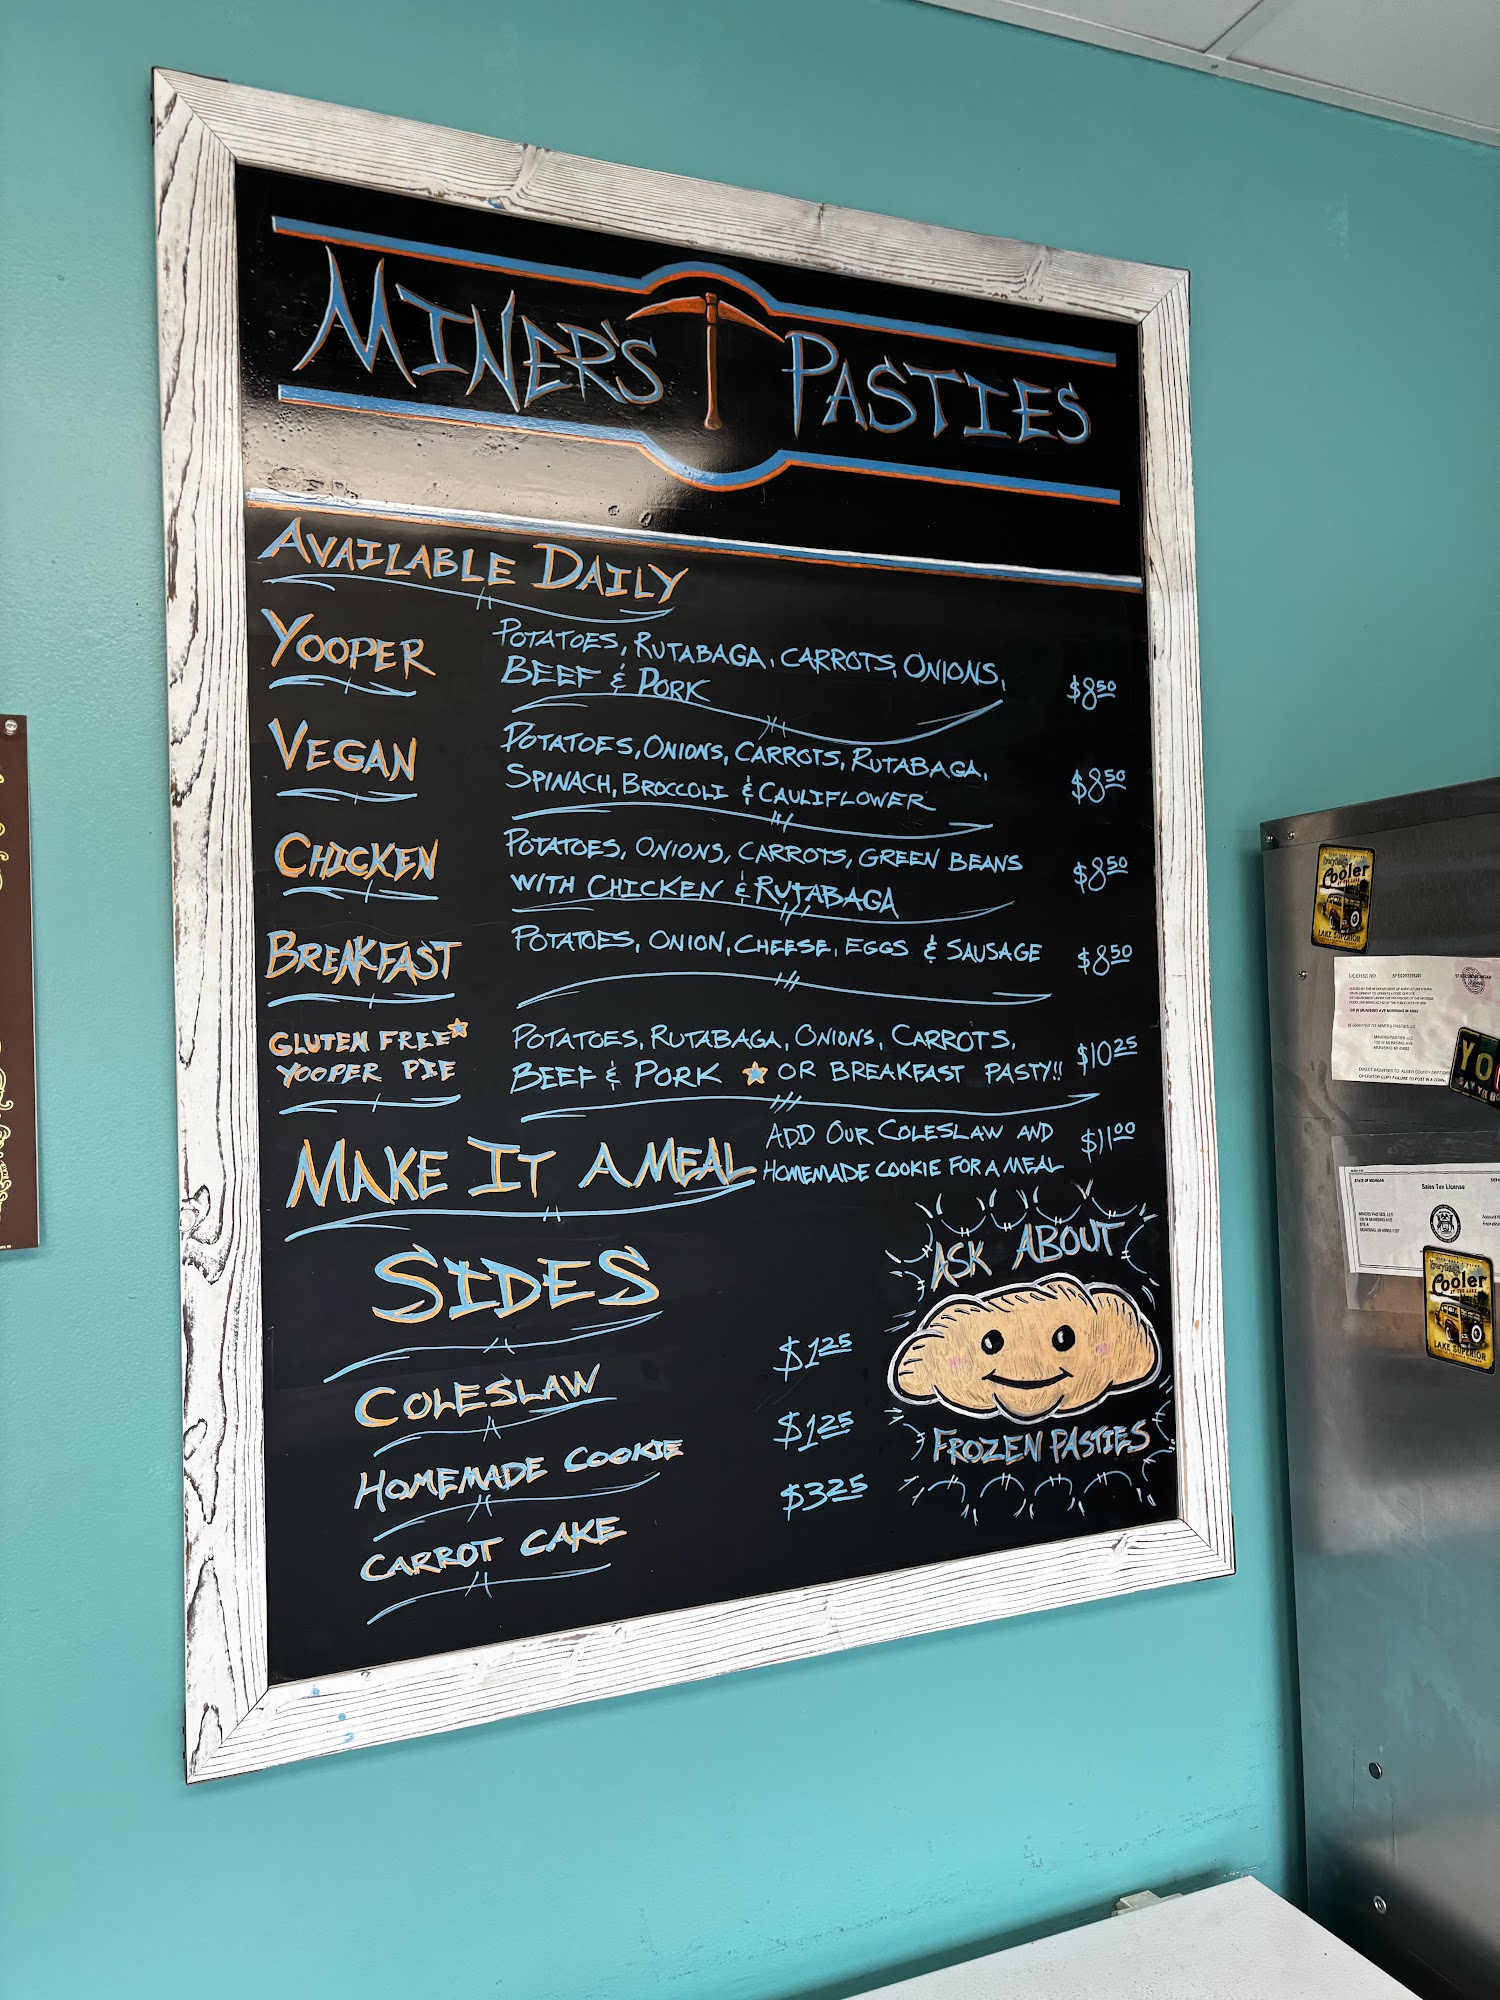 MINER'S PASTIES
AVAILABLE DAILY
YOOPER
POTATOES, RUTABAGA, CARROTS, ONIONS,
BEEF & PORK
$8.50
VEGAN
POTATOES, ONIONS, CARROTS, RUTABAGA,
SPINACH, BROCCOLI & CAULIFLOWER
$8.50
CHICKEN
POTATOES, ONIONS, CARROTS, GREEN BEANS
WITH CHICKEN & RUTABAGA
$8.50
BREAKFAST
POTATOES, ONION, CHEESE, EGGS & SAUSAGE
$8.50
GLUTEN FREE*
YOOPER PIE
POTATOES, RUTABAGA, ONIONS, CARROTS,
BEEF & PORK ★ OR BREAKFAST PASTY!!
$10.25
MAKE IT A MEAL
ADD OUR COLESLAW AND
HOMEMADE COOKIE FOR A MEAL
$11.00
SIDES
COLESLAW
$1.25
HOMEMADE COOKIE
$1.25
CARROT CAKE
$3.25
ASK ABOUT
FROZEN PASTIES
Cooler
LAKE SUPERIOR
LICENSE NO.
MINERS PASTIES LLC
YO
Sales Tax License
MINERS PASTIES, LLC
Cooler
AT THE LAKE
LAKE SUPERIOR